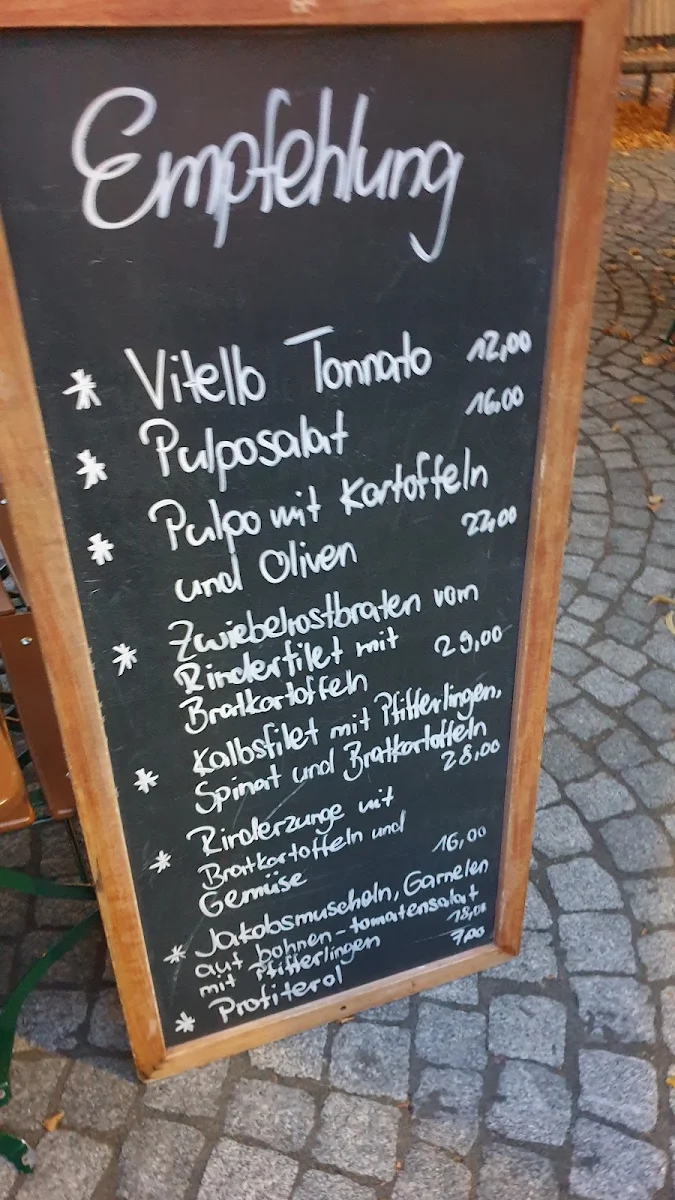 Empfehlung
* Vitello Tonnato 12,00
* Pulposalat 16,00
* Pulpo mit Kartoffeln
und Oliven 22,00
* Zwiebelrostbraten vom
Rinderfilet mit 29,00
Bratkartoffeln
* Kalbsfilet mit Pfifferlingen,
Spinat und Bratkartoffeln
28,00
* Rinderzunge mit
Bratkartoffeln und
Gemüse 16,00
* Jakobsmuscheln, Garnelen
auf bohnen-tomatensalat
mit Pfifferlingen 18,00
* Profiterol 7,00